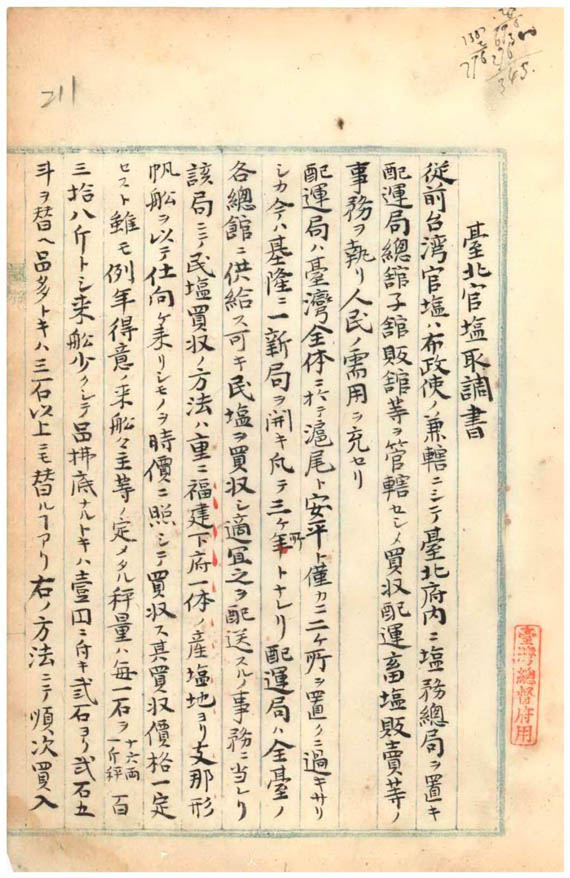 臺北官塩取調書
従前台湾官塩ハ布政使ノ兼轄ニシテ臺北府内ニ塩務總局ヲ置キ
配運局總舘子舘販舘等ヲ管轄セシメ買収配運畜塩販賣等ノ
事務ヲ執リ人民ノ需用ヲ充セリ
配運局ハ臺灣全体ニ於テ滬尾ト安平ト僅カニ二ケ所ヲ置クニ過キサリ
シカ今ハ基隆ニ一新局ヲ開キ凡テ三ケ所トナレリ配運局ハ全臺ノ
各總館ニ供給ス可キ民塩ヲ買収シ適宜之ヲ配送スルノ事務ニ当レリ
該局ニテ民塩買収ノ方法ハ重ニ福建下府一体ノ産塩地ヨリ支那形
帆船ヲ以テ仕向ケ来リシモノヲ時價ニ照シテ買収ス其買収價格一定
セスト雖モ例年得意ノ来船々主等ノ定メタル秤量ハ毎一石ヲ十六両一斤秤百
三拾八斤トシ来船少クシテ品拂底ナルトキハ壹円ニ付キ弐石ヨリ弐石五
斗ヲ替ヘ品多キトキハ三石以上ニモ替ルヿアリ右ノ方法ニテ順次買入
臺灣總督府用
211
345.